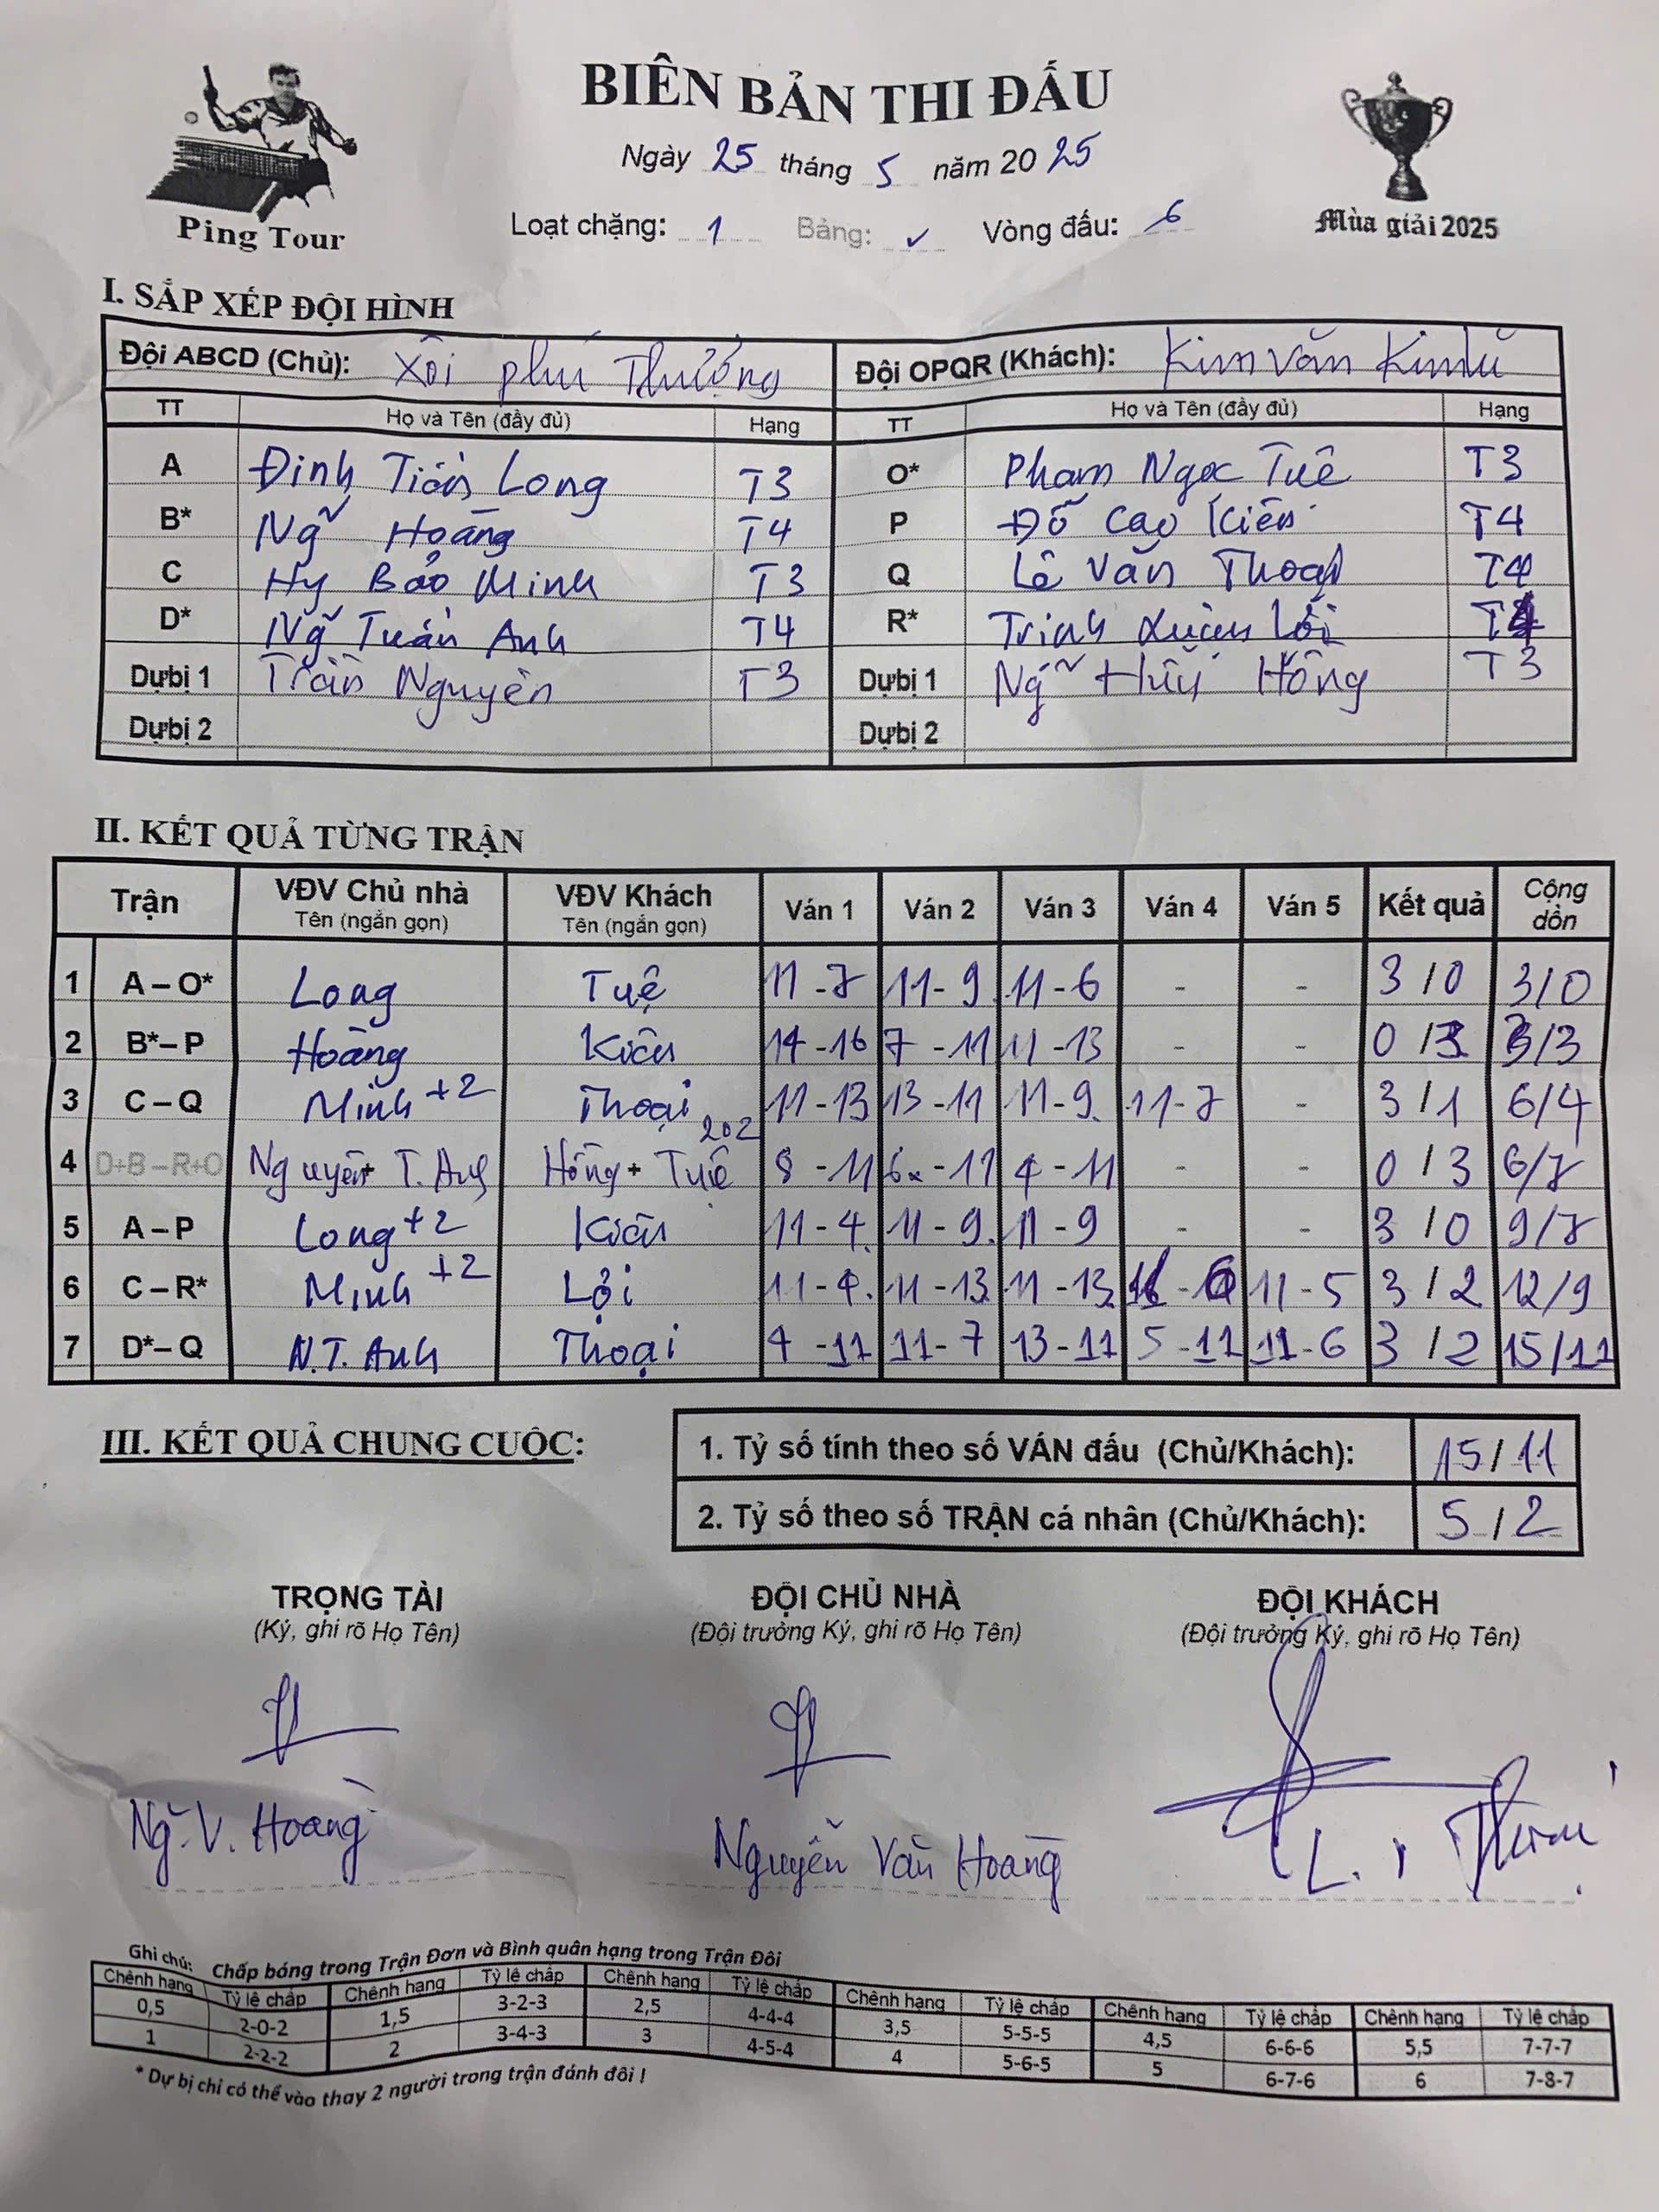 BIÊN BẢN THI ĐẤU
Ngày 25 tháng 5 năm 20 25
Ping Tour
Loạt chặng: 1 Bảng: ✓ Vòng đấu: 6
Mùa giải 2025
I. SẮP XẾP ĐỘI HÌNH
Đội ABCD (Chủ): Xôi phú Thượng Đội OPQR (Khách): Kim Văn Kimlũ
TT Họ và Tên (đầy đủ) Hạng TT Họ và Tên (đầy đủ) Hạng
A Đinh Tiến Long T3 O* Phạm Ngọc Tuê T3
B* Ng̃ Hoàng T4 P Đỗ Cao Kiên T4
C Hy Bảo Minh T3 Q Lê Văn Thoại T4
D* Ng̃ Tuấn Anh T4 R* Trịnh Lợi T4
Dự bị 1 Trần Nguyên T3 Dự bị 1 Ng̃ Hữu Hồng T3
Dự bị 2 Dự bị 2
II. KẾT QUẢ TỪNG TRẬN
Trận VĐV Chủ nhà VĐV Khách Ván 1 Ván 2 Ván 3 Ván 4 Ván 5 Kết quả Cộng dồn
Tên (ngắn gọn) Tên (ngắn gọn)
1 A – O* Long Tuệ 11 - 7 11 - 9 11 - 6 - - 3 / 0 3/0
2 B* – P Hoàng Kiên 14 - 16 7 - 11 11 - 13 - - 0 / 3 3/3
3 C – Q Minh +2 Thoại 11 - 13 13 - 11 11 - 9 11 - 7 - 3 / 1 6/4
4 D+B – R+O Nguyên + T. Anh Hồng + Tuệ 202 8 - 11 6 - 11 4 - 11 - - 0 / 3 6/7
5 A – P Long +2 Kiên 11 - 4 11 - 9 11 - 9 - - 3 / 0 9/7
6 C – R* Minh +2 Lợi 11 - 4 11 - 13 11 - 13 11 - 5 3 / 2 12/9
7 D* – Q N.T. Anh Thoại 4 - 11 11 - 7 13 - 11 5 - 11 11 - 6 3 / 2 15/11
III. KẾT QUẢ CHUNG CUỘC:
1. Tỷ số tính theo số VÁN đấu (Chủ/Khách): 15 / 11
2. Tỷ số theo số TRẬN cá nhân (Chủ/Khách): 5 / 2
TRỌNG TÀI ĐỘI CHỦ NHÀ ĐỘI KHÁCH
(Ký, ghi rõ Họ Tên) (Đội trưởng Ký, ghi rõ Họ Tên) (Đội trưởng Ký, ghi rõ Họ Tên)
Ng̃. V. Hoàng Nguyễn Văn Hoàng
Ghi chú: Chấp bóng trong Trận Đơn và Bình quân hạng trong Trận Đôi
Chênh hạng Tỷ lệ chấp Chênh hạng Tỷ lệ chấp Chênh hạng Tỷ lệ chấp Chênh hạng Tỷ lệ chấp Chênh hạng Tỷ lệ chấp Chênh hạng Tỷ lệ chấp
0,5 2-0-2 1,5 3-2-3 2,5 4-4-4 3,5 5-5-5 4,5 6-6-6 5,5 7-7-7
1 2-2-2 2 3-4-3 3 4-5-4 4 5-6-5 5 6-7-6 6 7-8-7
* Dự bị chỉ có thể vào thay 2 người trong trận đánh đôi !